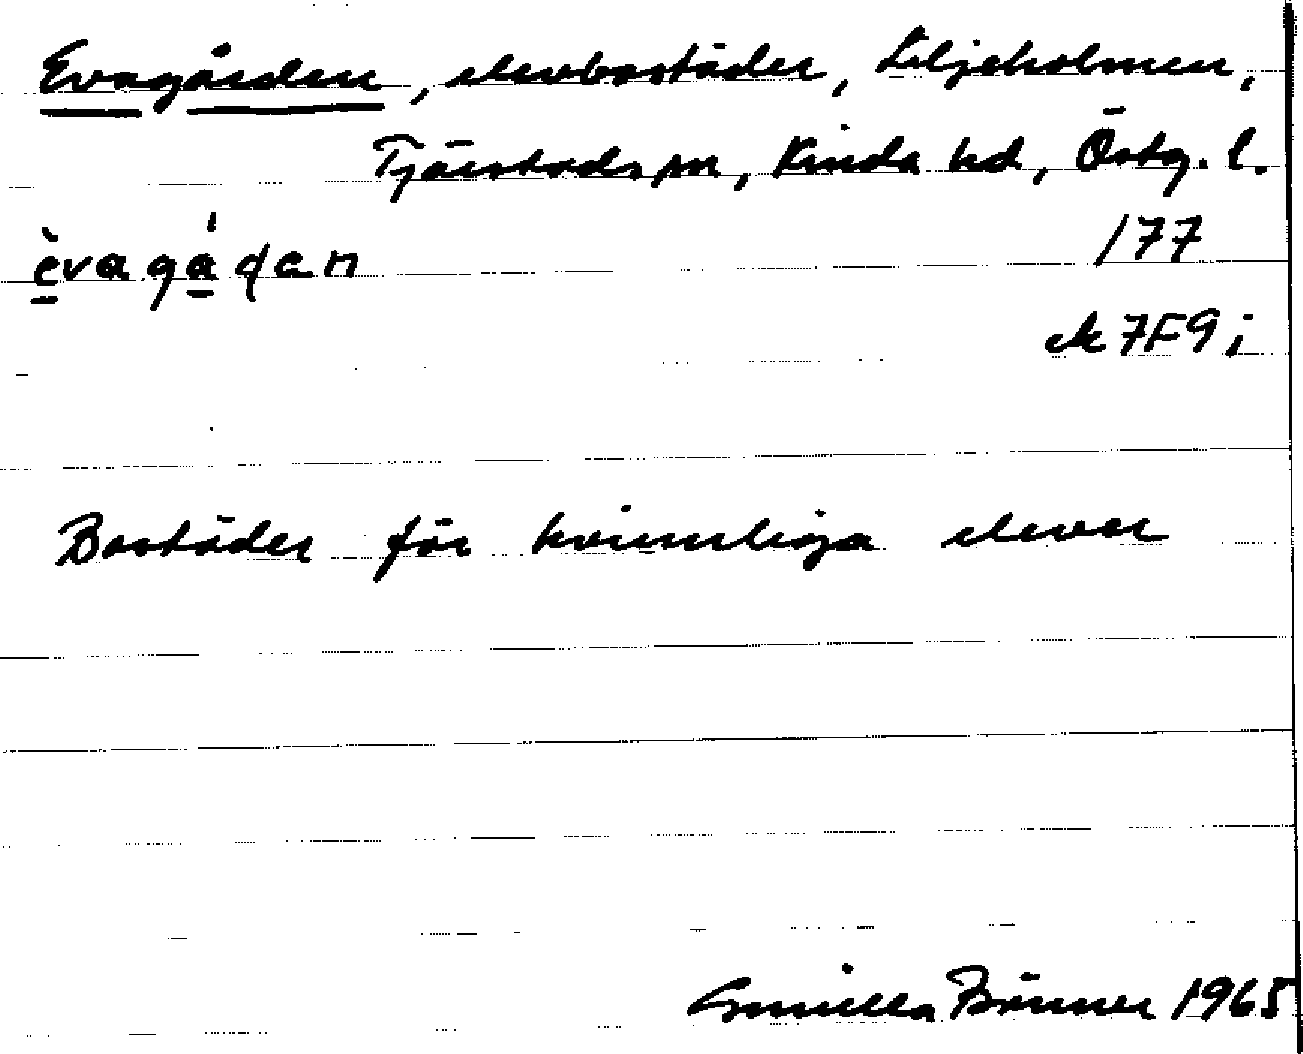 Evagården, elevbostäder, Liljeholmen,
Tjärstads sn, Kinda hd, Östg. l.
èvagǻdan
177
ek 7F9i
Bostäder för kvinnliga elever
Gunilla Brinner 1965